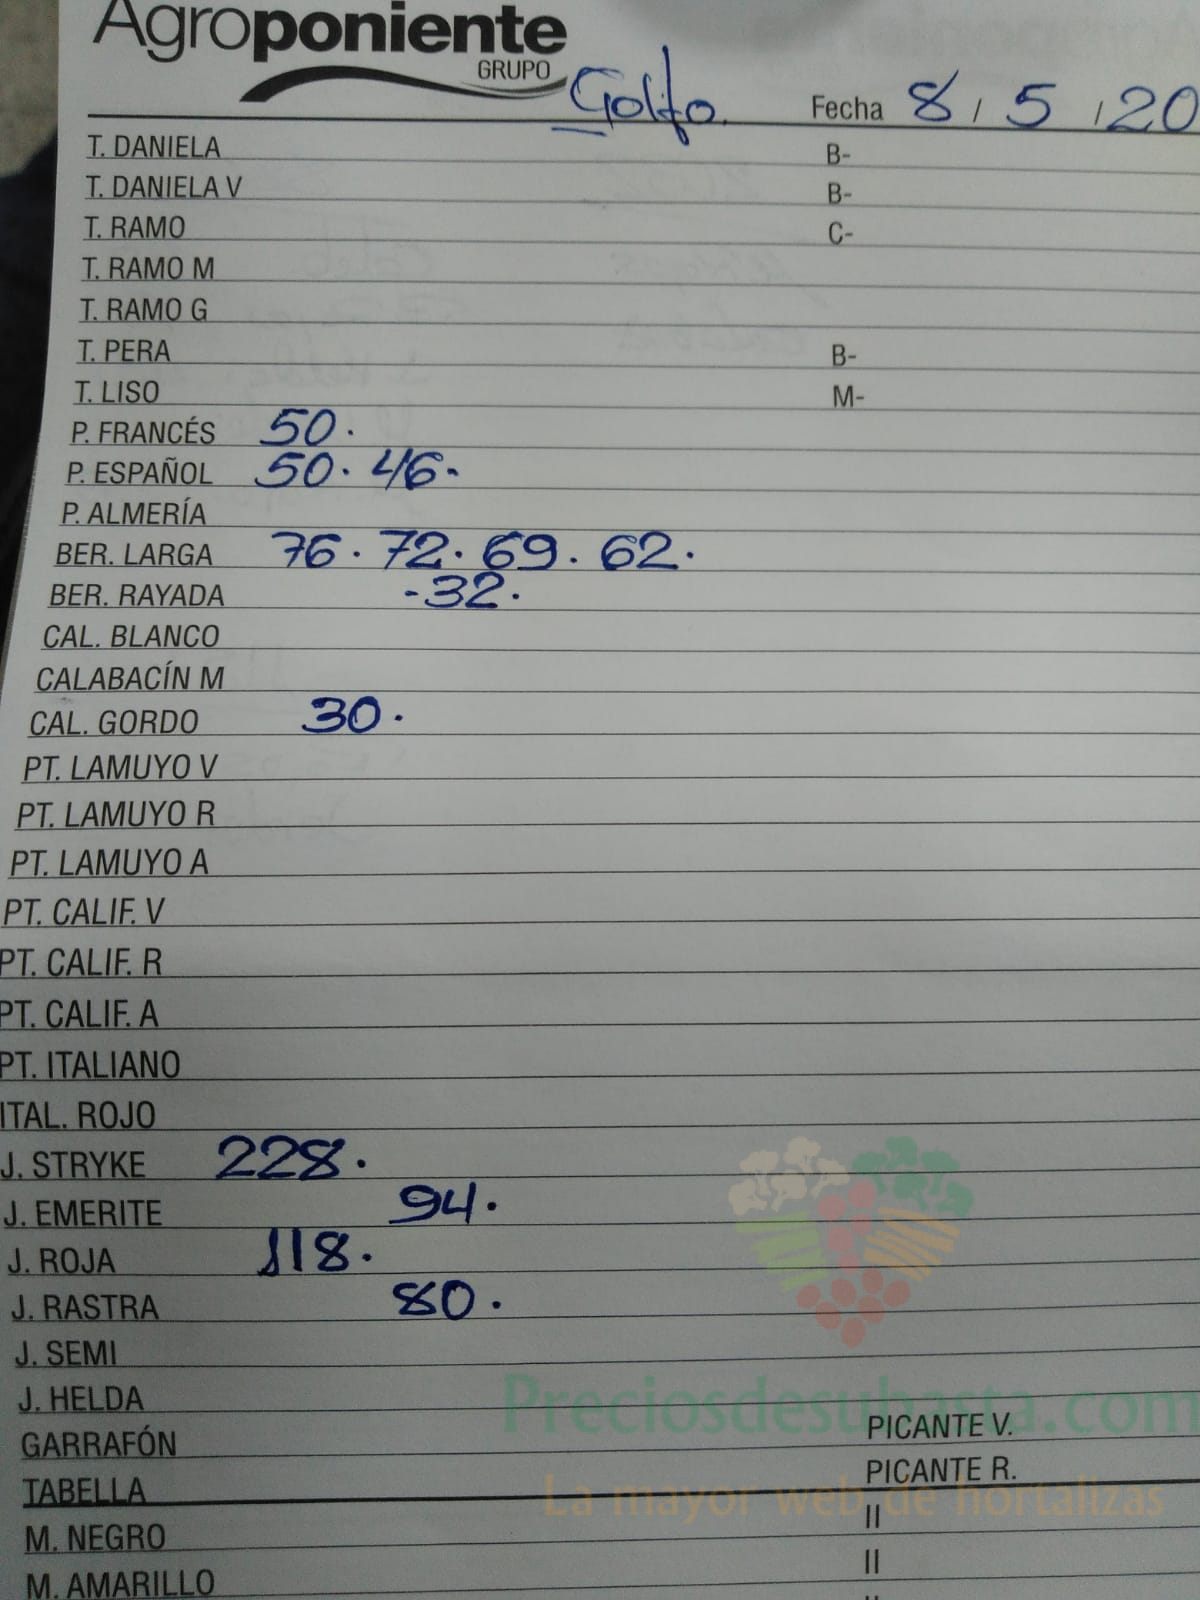 Agroponiente
GRUPO
Golfo. Fecha 8 / 5 / 20
T. DANIELA B-
T. DANIELA V B-
T. RAMO C-
T. RAMO M
T. RAMO G
T. PERA B-
T. LISO M-
P. FRANCÉS 50.
P. ESPAÑOL 50. 46.
P. ALMERÍA
BER. LARGA 76. 72. 69. 62.
BER. RAYADA -32.
CAL. BLANCO
CALABACÍN M
CAL. GORDO 30.
PT. LAMUYO V
PT. LAMUYO R
PT. LAMUYO A
PT. CALIF. V
PT. CALIF. R
PT. CALIF. A
PT. ITALIANO
ITAL. ROJO
J. STRYKE 228.
J. EMERITE 94.
J. ROJA 118.
J. RASTRA 80.
J. SEMI
J. HELDA
Preciosdesubasta.com
GARRAFÓN PICANTE V.
TABELLA PICANTE R.
La mayor web de hortalizas
M. NEGRO II
M. AMARILLO II